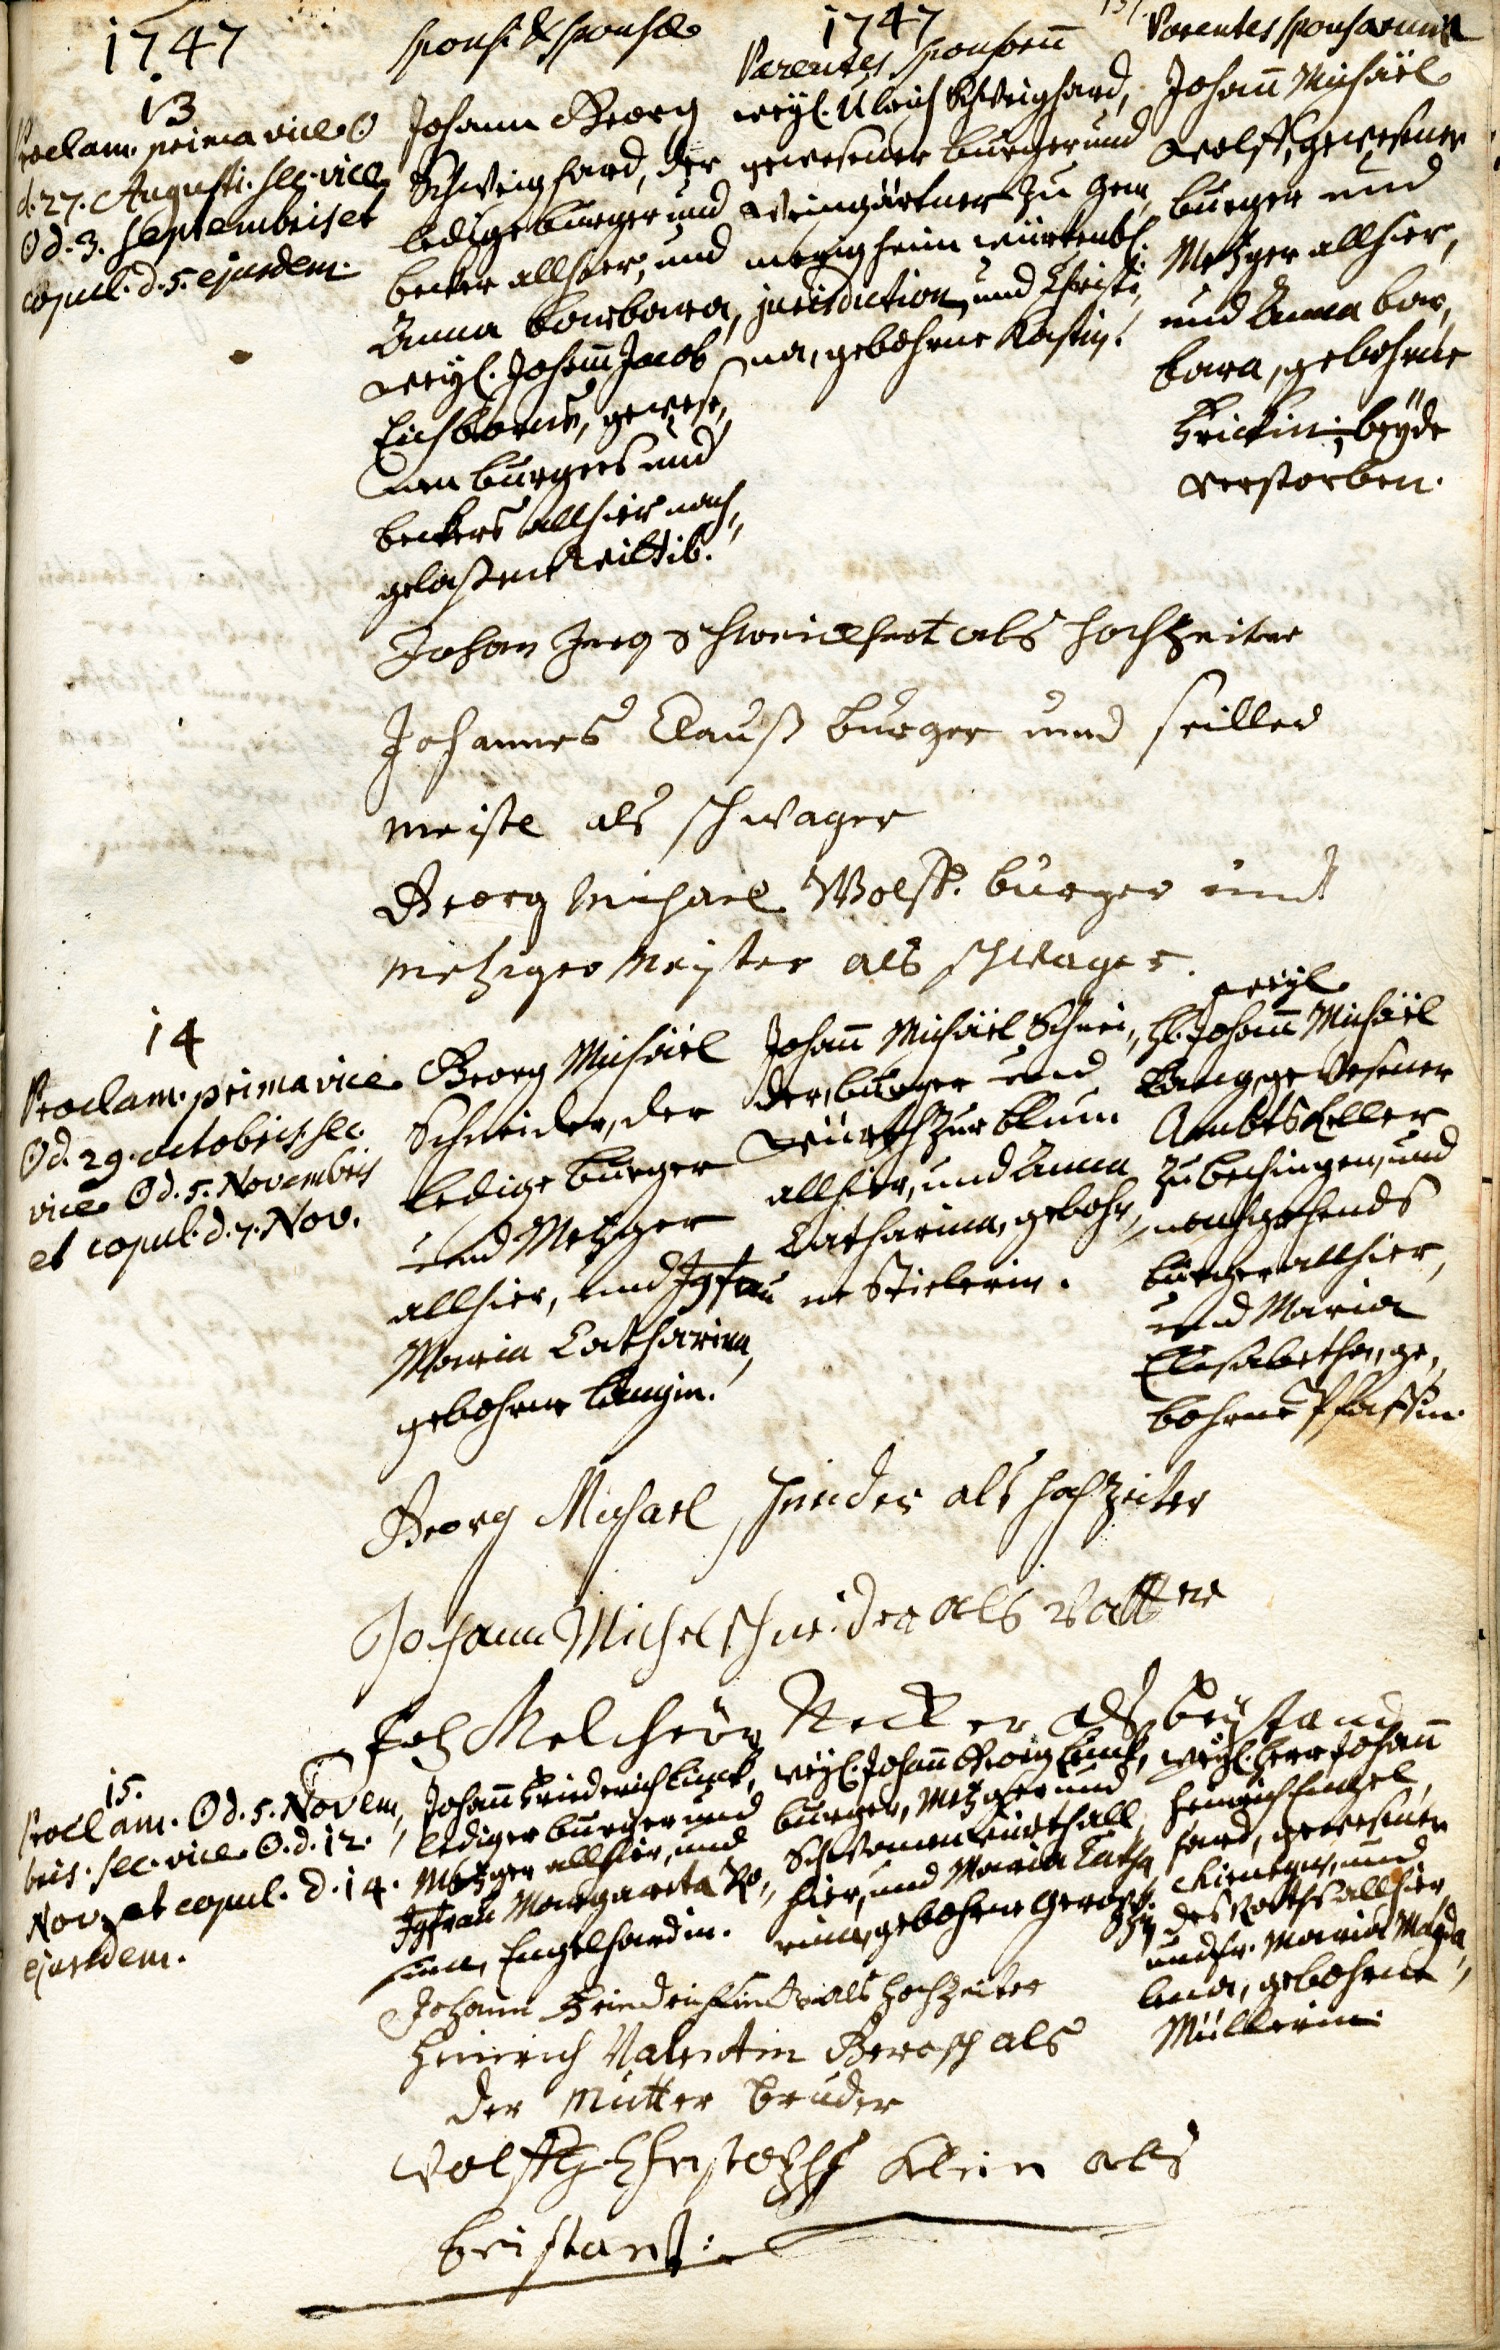 1747
sponsi & sponsae
1747
Parentes sponsorum
Parentes sponsarum
13
Proclam. prima vice ☉
d. 27. Augusti. sec. vice
☉ d. 3. Septembris et
copul. d. 5. ejusdem.
Johann Georg
Schweighard, der
ledige burger und
becker allhier, und
Anna Barbara,
weyl. Johann Jacob
Eichborns, gewese,,
nen burgers und
beckers allhier nach,,
gelaßene Wittib.
weyl. Ulrich Schweighard,
gewesener burger und
Weingärtner zu Gem,,
mrigheim würtenbl.
jurisdiction, und Christi,,
na, gebohrne Kastin.
Johann Michäel
Wolff, gewesener
burger und
Metzger allhier,
und Anna Bar,,
bara, gebohrne
Frickin; beyde
verstorben.
Johan Jerg Schweickhert als Hochzeiter
Johannes Clauß burger und seiller
meister als schwager
Georg Michael Wolff. burger und
metzger Meister als schwager.
14
Proclam. prima vice
☉ d. 29. octobris. sec.
vice ☉ d. 5. Novembris
et copul. d. 7. Nov.
Georg Michäel
Schneider, der
ledige burger
und Metzger
allhier, und Jgfrau
Maria Catharina,
gebohrne Langin.
Johann Michäel Schnei,,
der, burger und
Würth zur Blum
allhier, und Anna
Catharina, gebohr,,
ne Stielerin.
weyl.
H. Johann Michäel
Lang, gewesener
Ambts Keller
zu bechingen, und
nachgehends
burger allhier,
und Maria
Elisabetha, ge,,
bohrne Pfaffin.
Georg Michael Schneider als hochzeiter
Johann Michel schneider als Vatter
Joh Melchior Necker als beystand
15.
Proclam. ☉ d. 5. Novem,,
bris. sec. vice ☉. d. 12.
Nov. et copul. d. 14.
ejusdem.
Johann Friederich Linck,
lediger burger und
Metzger allhier, und
Jgfrau Margareta Ro,,
sina, Engelhardin.
weyl. Johann Georg Linck,
burger, Metzger und
Schwanenwürth all,,
hier, und Maria Catha,,
rina, gebohrne Gerosch.
weyl. Herr Johann
Heinrich Engel,,
hard, gewesener
Chirurgus, und
des Raths allhier,
und Fr. Maria Magda,,
lena, gebohrne
Müllerin.
Johann Friedrich Linck als Hochzeiter
Heinrich Valentin Gerosch als
der Mutter bruder
Wolffg. Christoph Klein als
beistant: